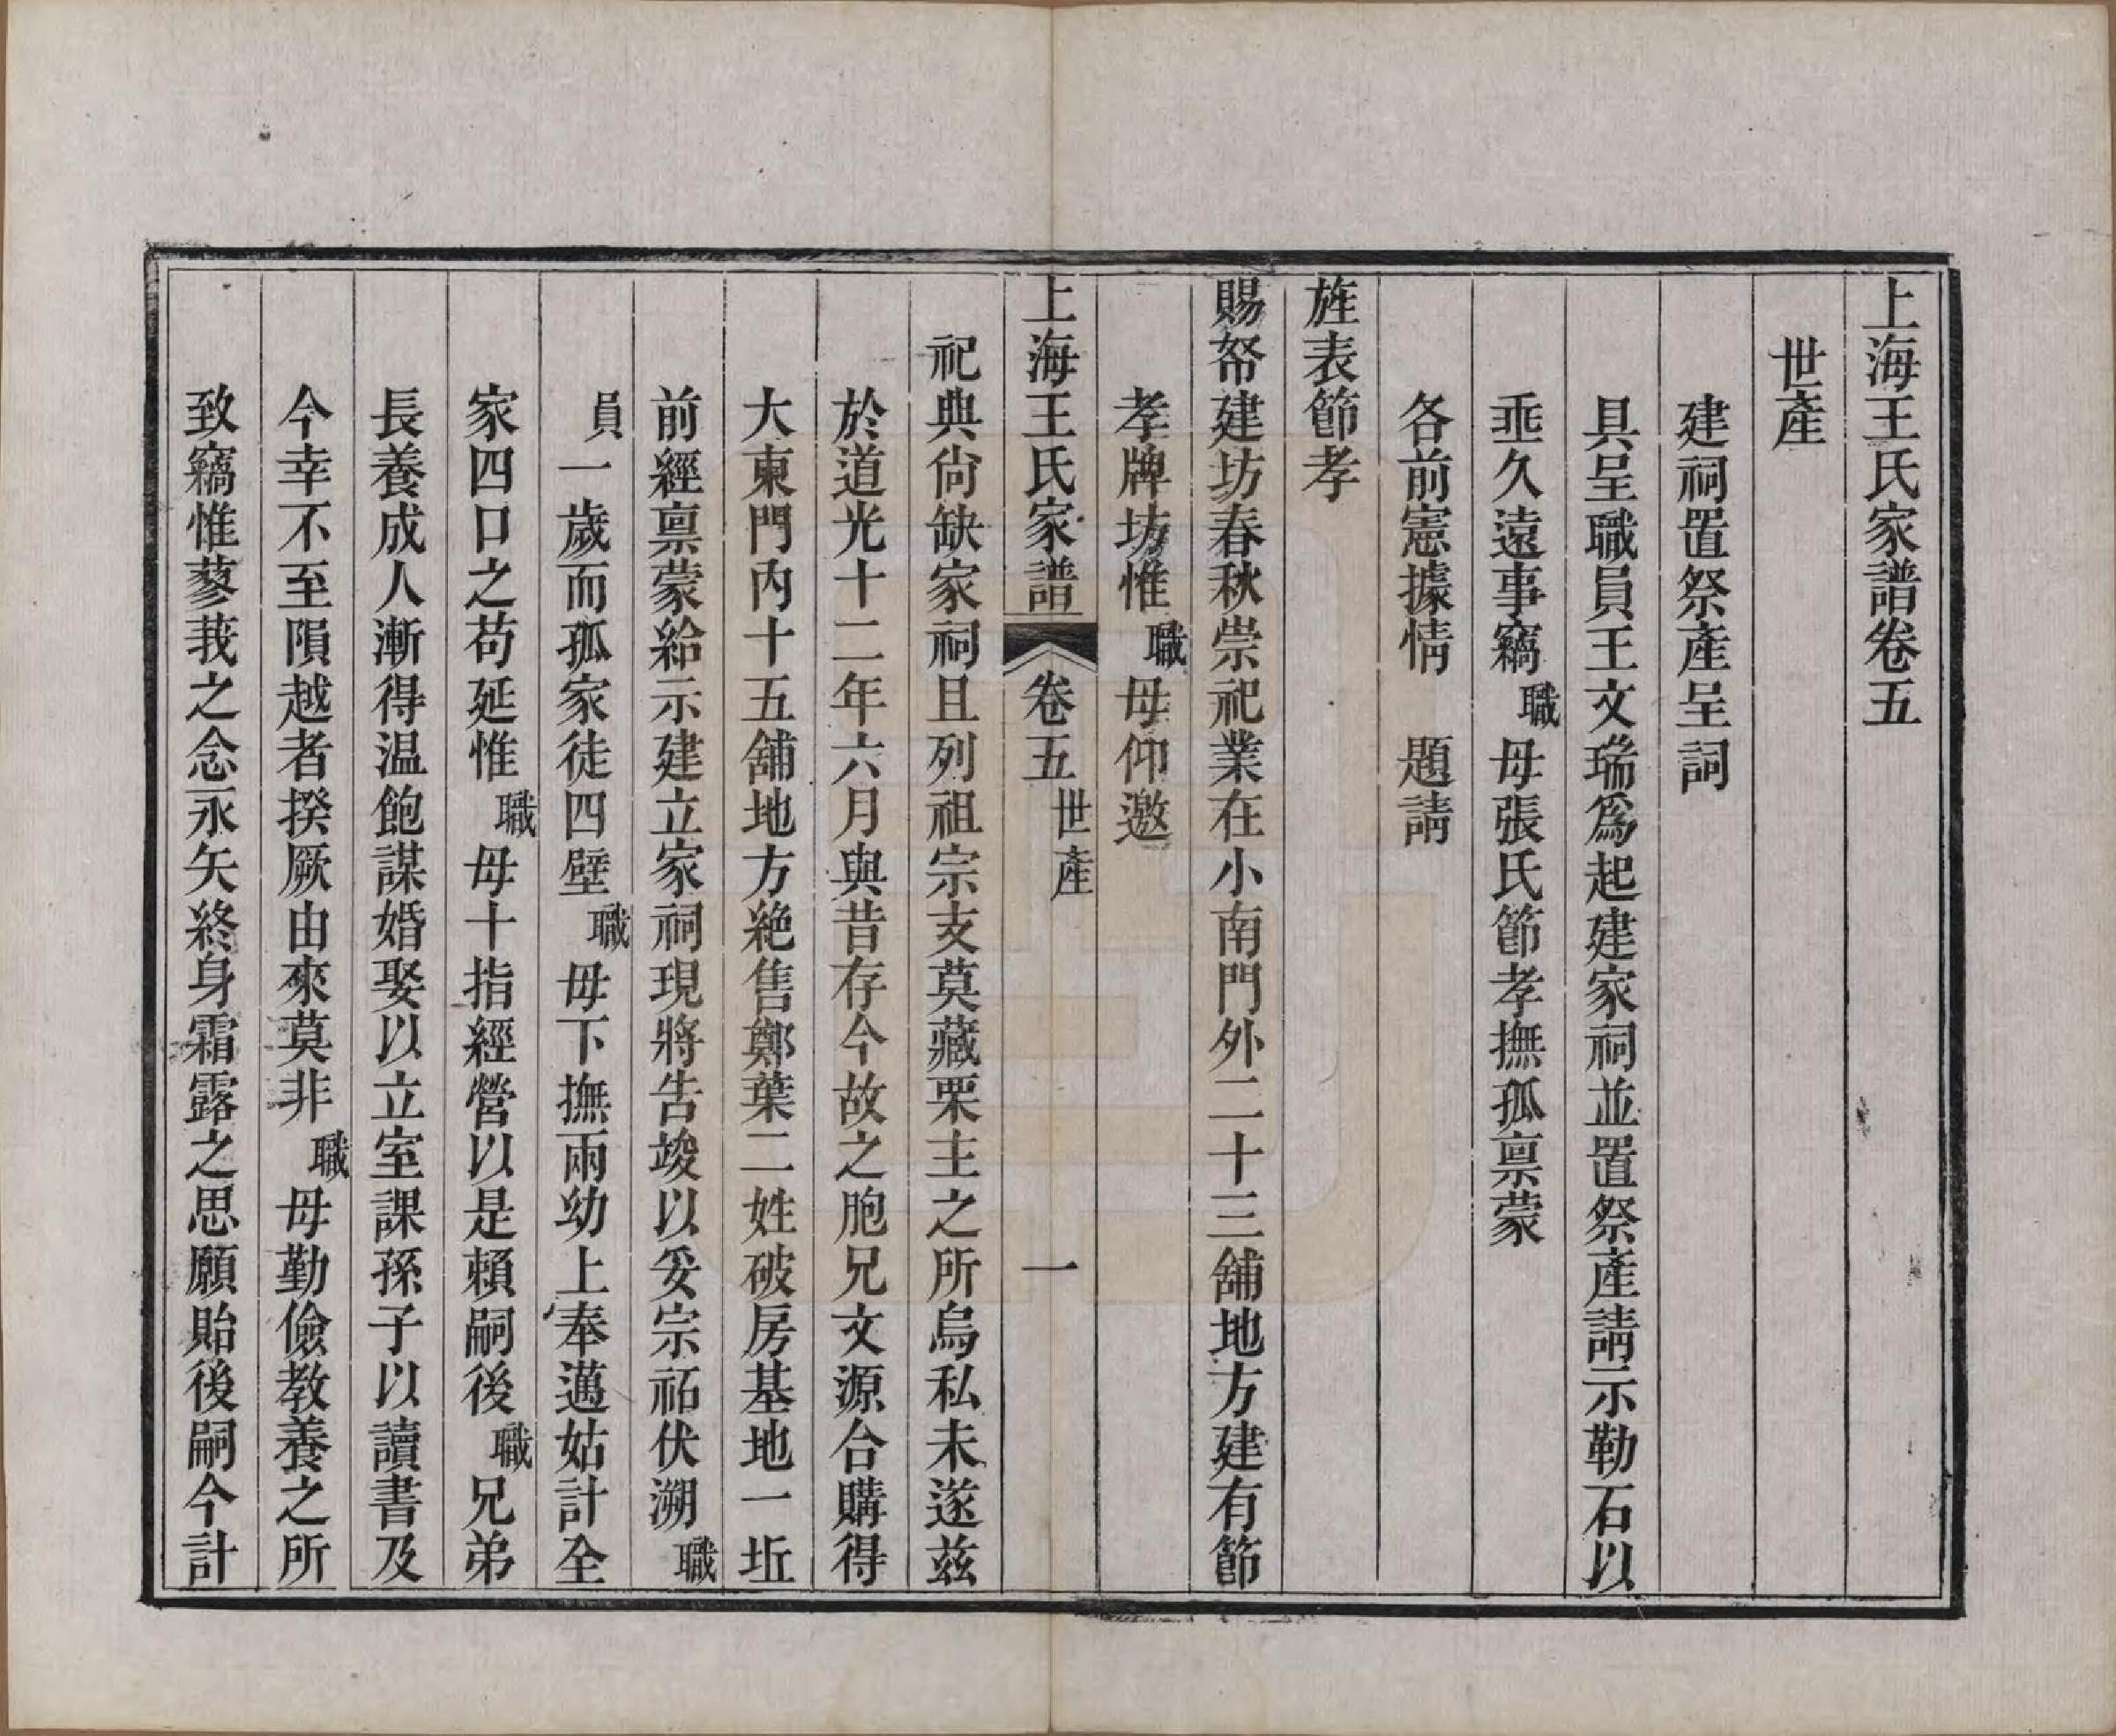 上海王氏家譜卷五
世產
建祠置祭產呈詞
具呈職員王文瑞爲起建家祠並置祭產請示勒石以
垂久遠事竊職母張氏節孝撫孤稟蒙
各前憲據情　題請
旌表節孝
賜帑建坊春秋崇祀業在小南門外二十三舖地方建有節
孝牌坊惟職母仰邀
上海王氏家譜　卷五　世產　一
祀典尙缺家祠且列祖宗支莫藏栗主之所烏私未遂茲
於道光十二年六月與昔存今故之胞兄文源合購得
大東門內十五舖地方絶售鄭葉二姓破房基地一坵
前經稟蒙給示建立家祠現將告竣以妥宗祏伏溯職
員一歲而孤家徒四壁職母下撫兩幼上奉邁姑計全
家四口之苟延惟職母十指經營以是賴嗣後職兄弟
長養成人漸得温飽謀婚娶以立室課孫子以讀書及
今幸不至隕越者揆厥由來莫非職母勤儉教養之所
致竊惟蓼莪之念永矢終身霜露之思願貽後嗣今計